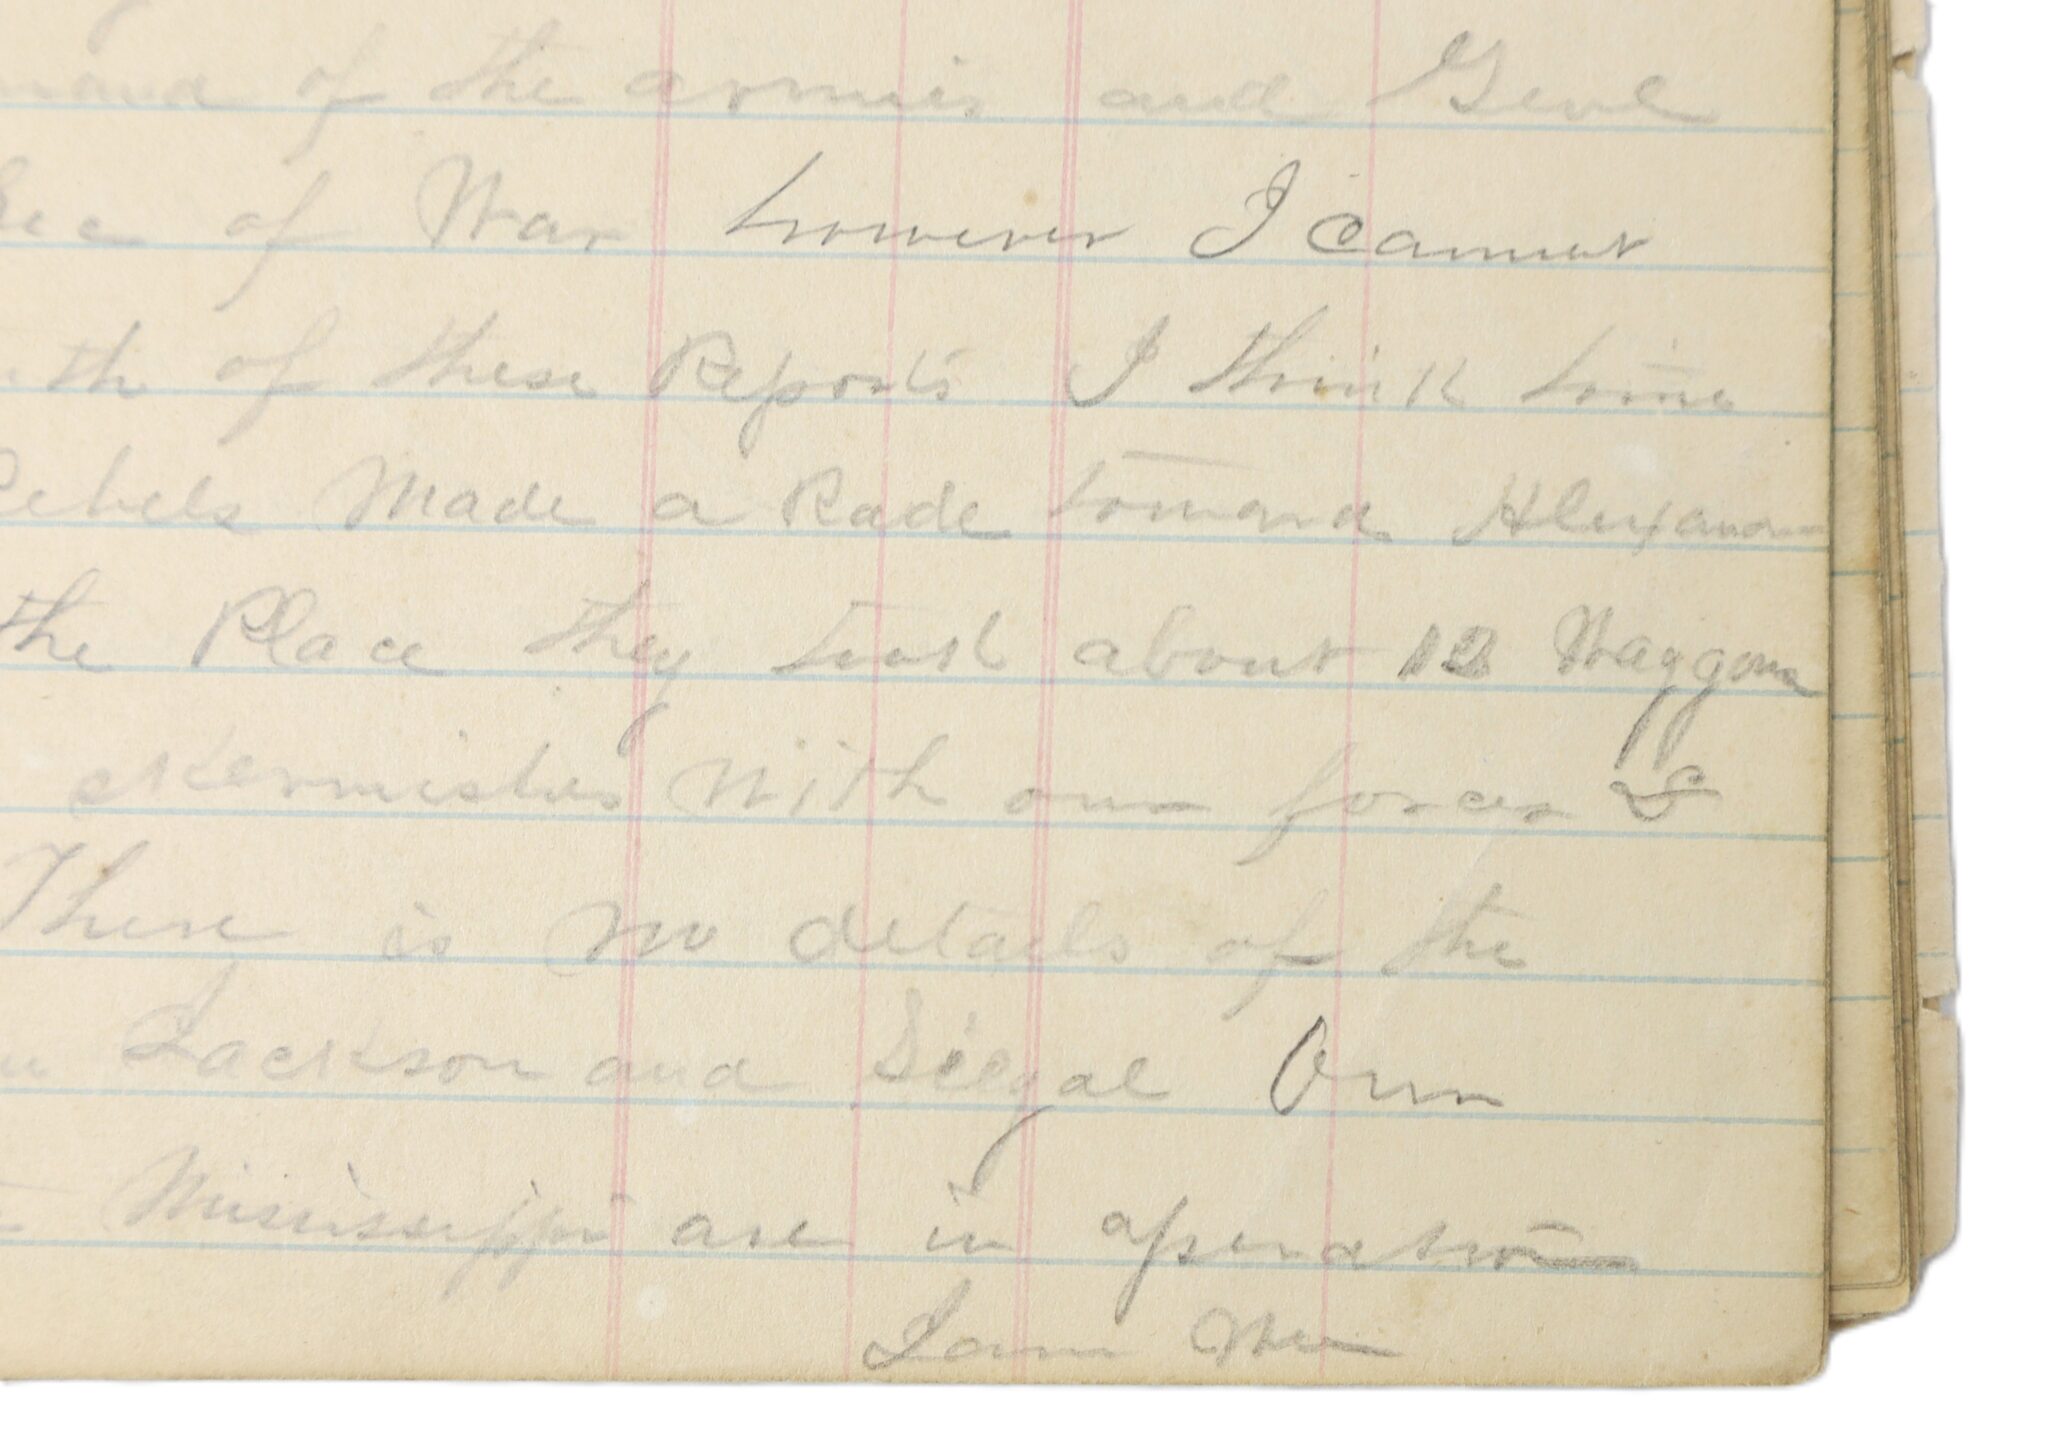 of the armies and Genl
Sec of War however I cannot
of these Reports I think some
Rebels Made a Rade toward Alexan
the Place they took about 12 Waggons
skermishes with our forces &
There is no details of the
Jackson and Siegal Our
Mississippi are in operation
I am We